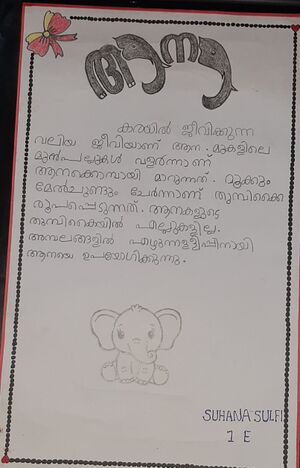 ആന
കരയിൽ ജീവിക്കുന്ന
വലിയ ജീവിയാണ് ആന. മുകളിലെ
മുൻപല്ലുകൾ വളർന്നാണ്
ആനക്കൊമ്പായി മാറുന്നത്. മൂക്കും
മേൽചുണ്ടും ചേർന്നാണ് തുമ്പിക്കൈ
രൂപപ്പെടുന്നത്. ആനകളുടെ
തുമ്പികൈയിൽ എല്ലുകളില്ല.
അമ്പലങ്ങളിൽ എഴുന്നള്ളിപ്പിനായി
ആനയെ ഉപയോഗിക്കുന്നു.
SUHANA SULFI
1 E